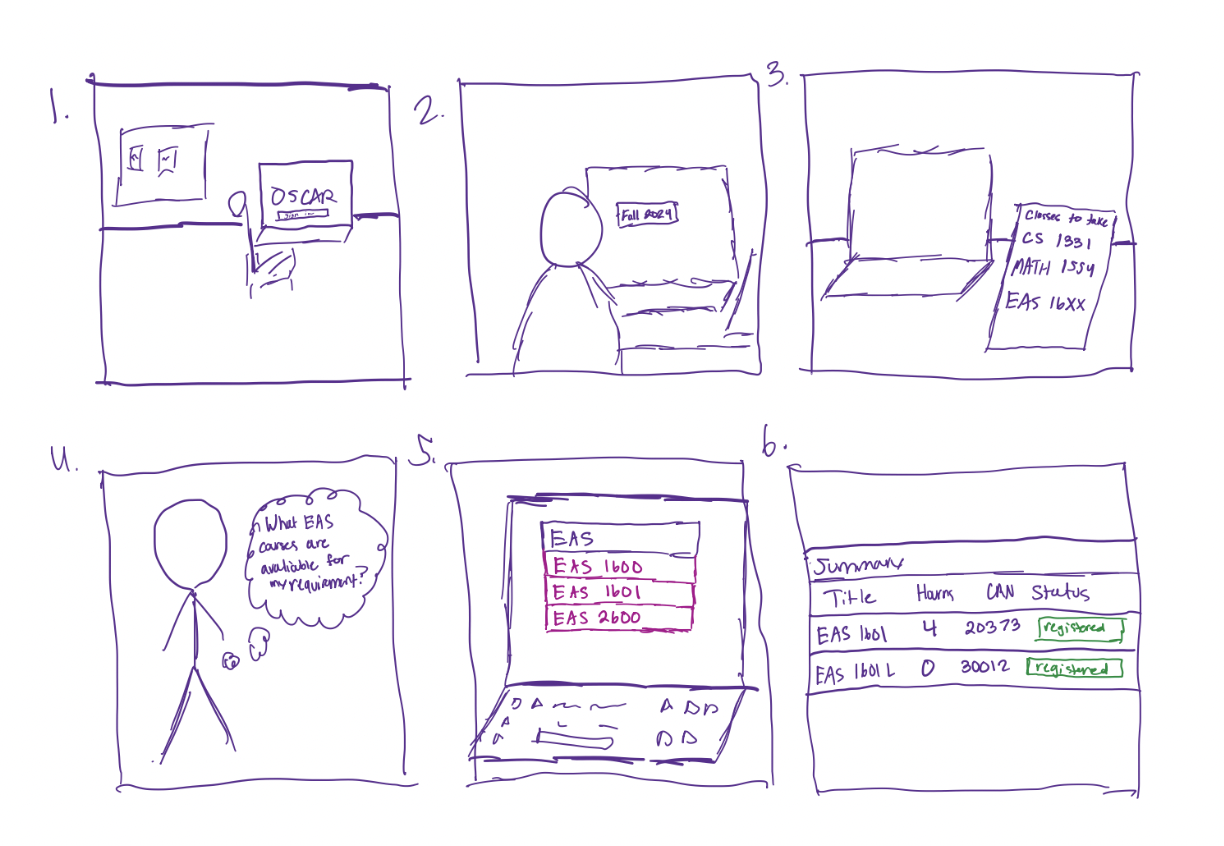 1.
OSCAR
sign in
2.
Fall 2024
3.
Classes to take
CS 1331
MATH 1554
EAS 16XX
4.
What EAS
courses are
avaliable for
my requirment?
5.
EAS
EAS 1600
EAS 1601
EAS 2600
6.
Summary
Title Hours CRN Status
EAS 1601 4 20373 registered
EAS 1601 L 0 30012 registered